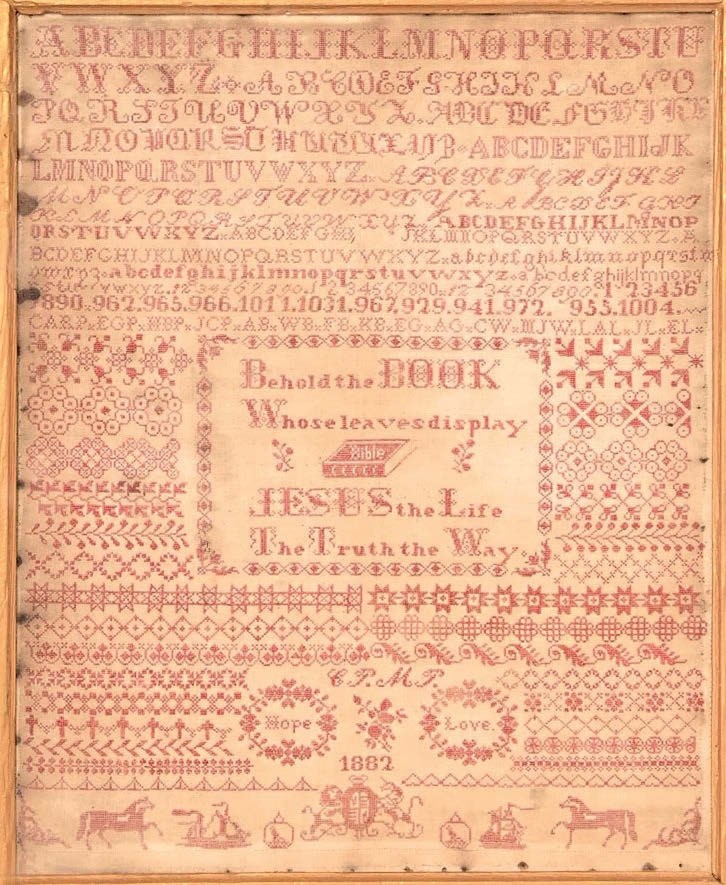 ABCDEFGHIJKLMNOPQRSTU
VWXYZ ABCDEFGHIJKLMNO
PQRSTUVWXYZ ABCDEFGHIJKL
ABCDEFGHIJK
LMNOPQRSTUVWXYZ ABCDEFGHIJKL
MNOPQRSTUVWXYZ ABCDEFGHI
KLMNOPQRSTUVWXYZ ABCDEFGHIJKLMNOP
QRSTUVWXYZ ABCDEFGHI JKLMNOPQRSTUVWXYZ A
BCDEFGHIJKLMNOPQRSTUVWXYZ abcdefghijklmnopqrstu
vwxyz abcdefghijklmnopqrstuvwxyz abcdefghijklmnopq
123456
890.962.965.966.1011.1031.967.929.941.972. 955.1004.
CARP.EGP.HBP.JCP.AB.WB.FB.KB.EG.AG.CW.MJW.LAL.JL.EL.
Behold the BOOK
Whose leaves display
Bible
JESUS the Life
The Truth the Way.
C.P.M.P.
Hope
Love
1882